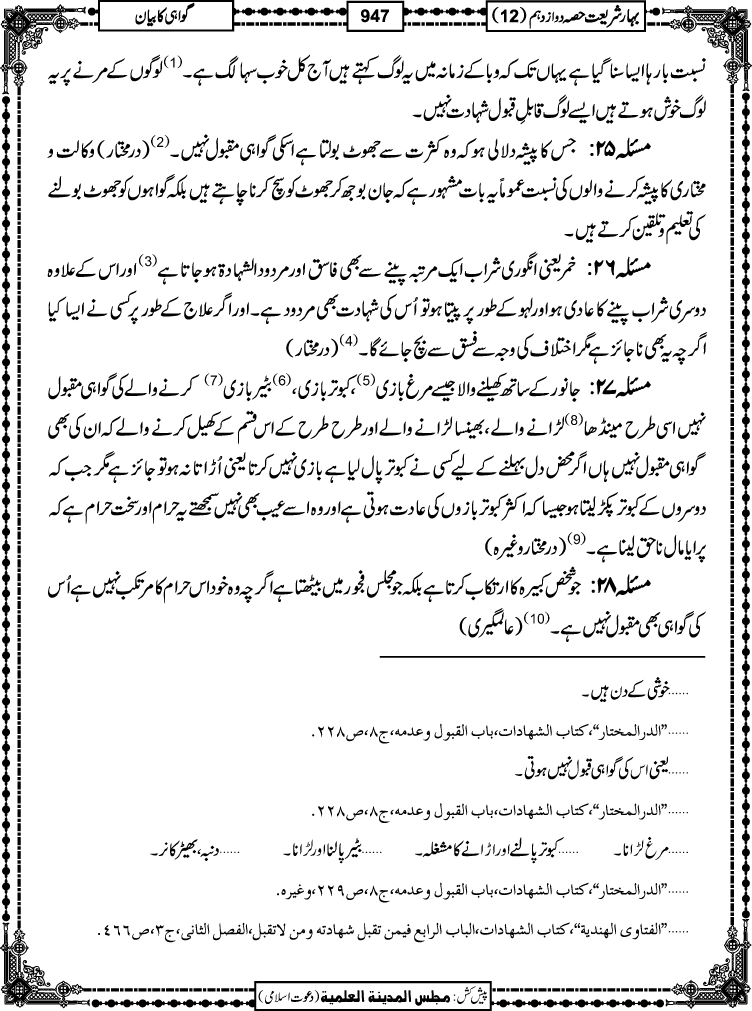 بہارِ شریعت حصہ دوازدہم (12)
947
گواہی کا بیان
نسبت بارہا ایسا سنا گیا ہے یہاں تک کہ وبا کے زمانہ میں یہ لوگ کہتے ہیں آج کل خوب سہالگ ہے۔(1) لوگوں کے مرنے پر یہ
لوگ خوش ہوتے ہیں ایسے لوگ قابلِ قبول شہادت نہیں۔
مسئلہ ۲۵: جس کا پیشہ دلالی ہو کہ وہ کثرت سے جھوٹ بولتا ہے اسکی گواہی مقبول نہیں۔(2) (درمختار) وکالت و
مختاری کا پیشہ کرنے والوں کی نسبت عموماً یہ بات مشہور ہے کہ جان بوجھ کر جھوٹ کو سچ کرنا چاہتے ہیں بلکہ گواہوں کو جھوٹ بولنے
کی تعلیم و تلقین کرتے ہیں۔
مسئلہ ۲۶: خمر یعنی انگوری شراب ایک مرتبہ پینے سے بھی فاسق اور مردود الشہادۃ ہو جاتا ہے(3) اور اس کے علاوہ
دوسری شراب پینے کا عادی ہو اور لہو کے طور پر پیتا ہو تو اُس کی شہادت بھی مردود ہے۔ اور اگر علاج کے طور پر کسی نے ایسا کیا
اگرچہ یہ بھی ناجائز ہے مگر اختلاف کی وجہ سے فسق سے بچ جائے گا۔(4) (درمختار)
مسئلہ ۲۷: جانور کے ساتھ کھیلنے والا جیسے مرغ بازی(5)، کبوتر بازی،(6) بٹیر بازی(7) کرنے والے کی گواہی مقبول
نہیں اسی طرح مینڈھا(8) لڑانے والے، بھینسا لڑانے والے اور طرح طرح کے اس قسم کے کھیل کرنے والے کہ ان کی بھی
گواہی مقبول نہیں ہاں اگر محض دل بہلنے کے لیے کسی نے کبوتر پال لیا ہے بازی نہیں کرتا یعنی اُڑاتا نہ ہو تو جائز ہے مگر جب کہ
دوسروں کے کبوتر پکڑ لیتا ہو جیسا کہ اکثر کبوتر بازوں کی عادت ہوتی ہے اور وہ اسے عیب بھی نہیں سمجھتے یہ حرام اور سخت حرام ہے کہ
پرایا مال ناحق لینا ہے۔(9) (درمختار وغیرہ)
مسئلہ ۲۸: جو شخص کبیرہ کا ارتکاب کرتا ہے بلکہ جو مجلس فجور میں بیٹھتا ہے اگرچہ وہ خود اس حرام کا مرتکب نہیں ہے اُس
کی گواہی بھی مقبول نہیں ہے۔(10) (عالمگیری)
......خوشی کے دن ہیں۔
......”الدرالمختار“، کتاب الشهادات، باب القبول وعدمه، ج۸، ص۲۲۸.
......یعنی اس کی گواہی قبول نہیں ہوتی۔
......”الدرالمختار“، کتاب الشهادات، باب القبول وعدمه، ج۸، ص۲۲۸.
......مرغ لڑانا۔ ......کبوتر پالنے اور اڑانے کا مشغلہ۔ ......بٹیر پالنا اور لڑانا۔ ......دنبہ، بھیڑ کا نر۔
......”الدرالمختار“، کتاب الشهادات، باب القبول وعدمه، ج۸، ص۲۲۹، وغیره.
......”الفتاوی الهندیة“، کتاب الشهادات، الباب الرابع فیمن تقبل شهادته ومن لاتقبل، الفصل الثانی، ج۳، ص٤٦٦.
پیش کش: مجلس المدینة العلمیة (دعوت اسلامی)